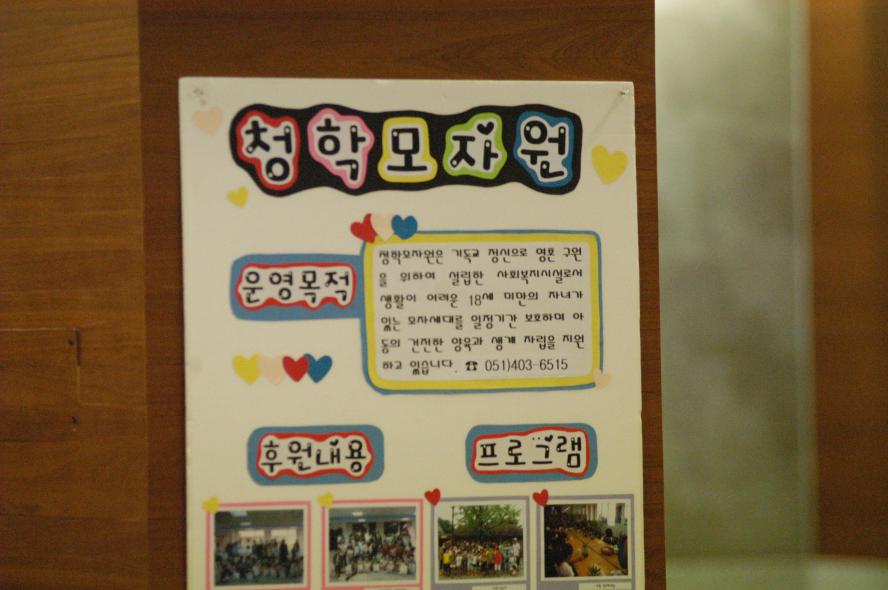 청학모자원
운영목적
청학모자원은 기독교 정신으로 영혼 구원
을 위하여 설립한 사회복지시설로서
생활이 어려운 18세 미만의 자녀가
있는 모자세대를 일정기간 보호하며 아
동의 건전한 양육과 생계 자립을 지원
하고 있습니다. ☎ 051)403-6515
후원내용
프로그램